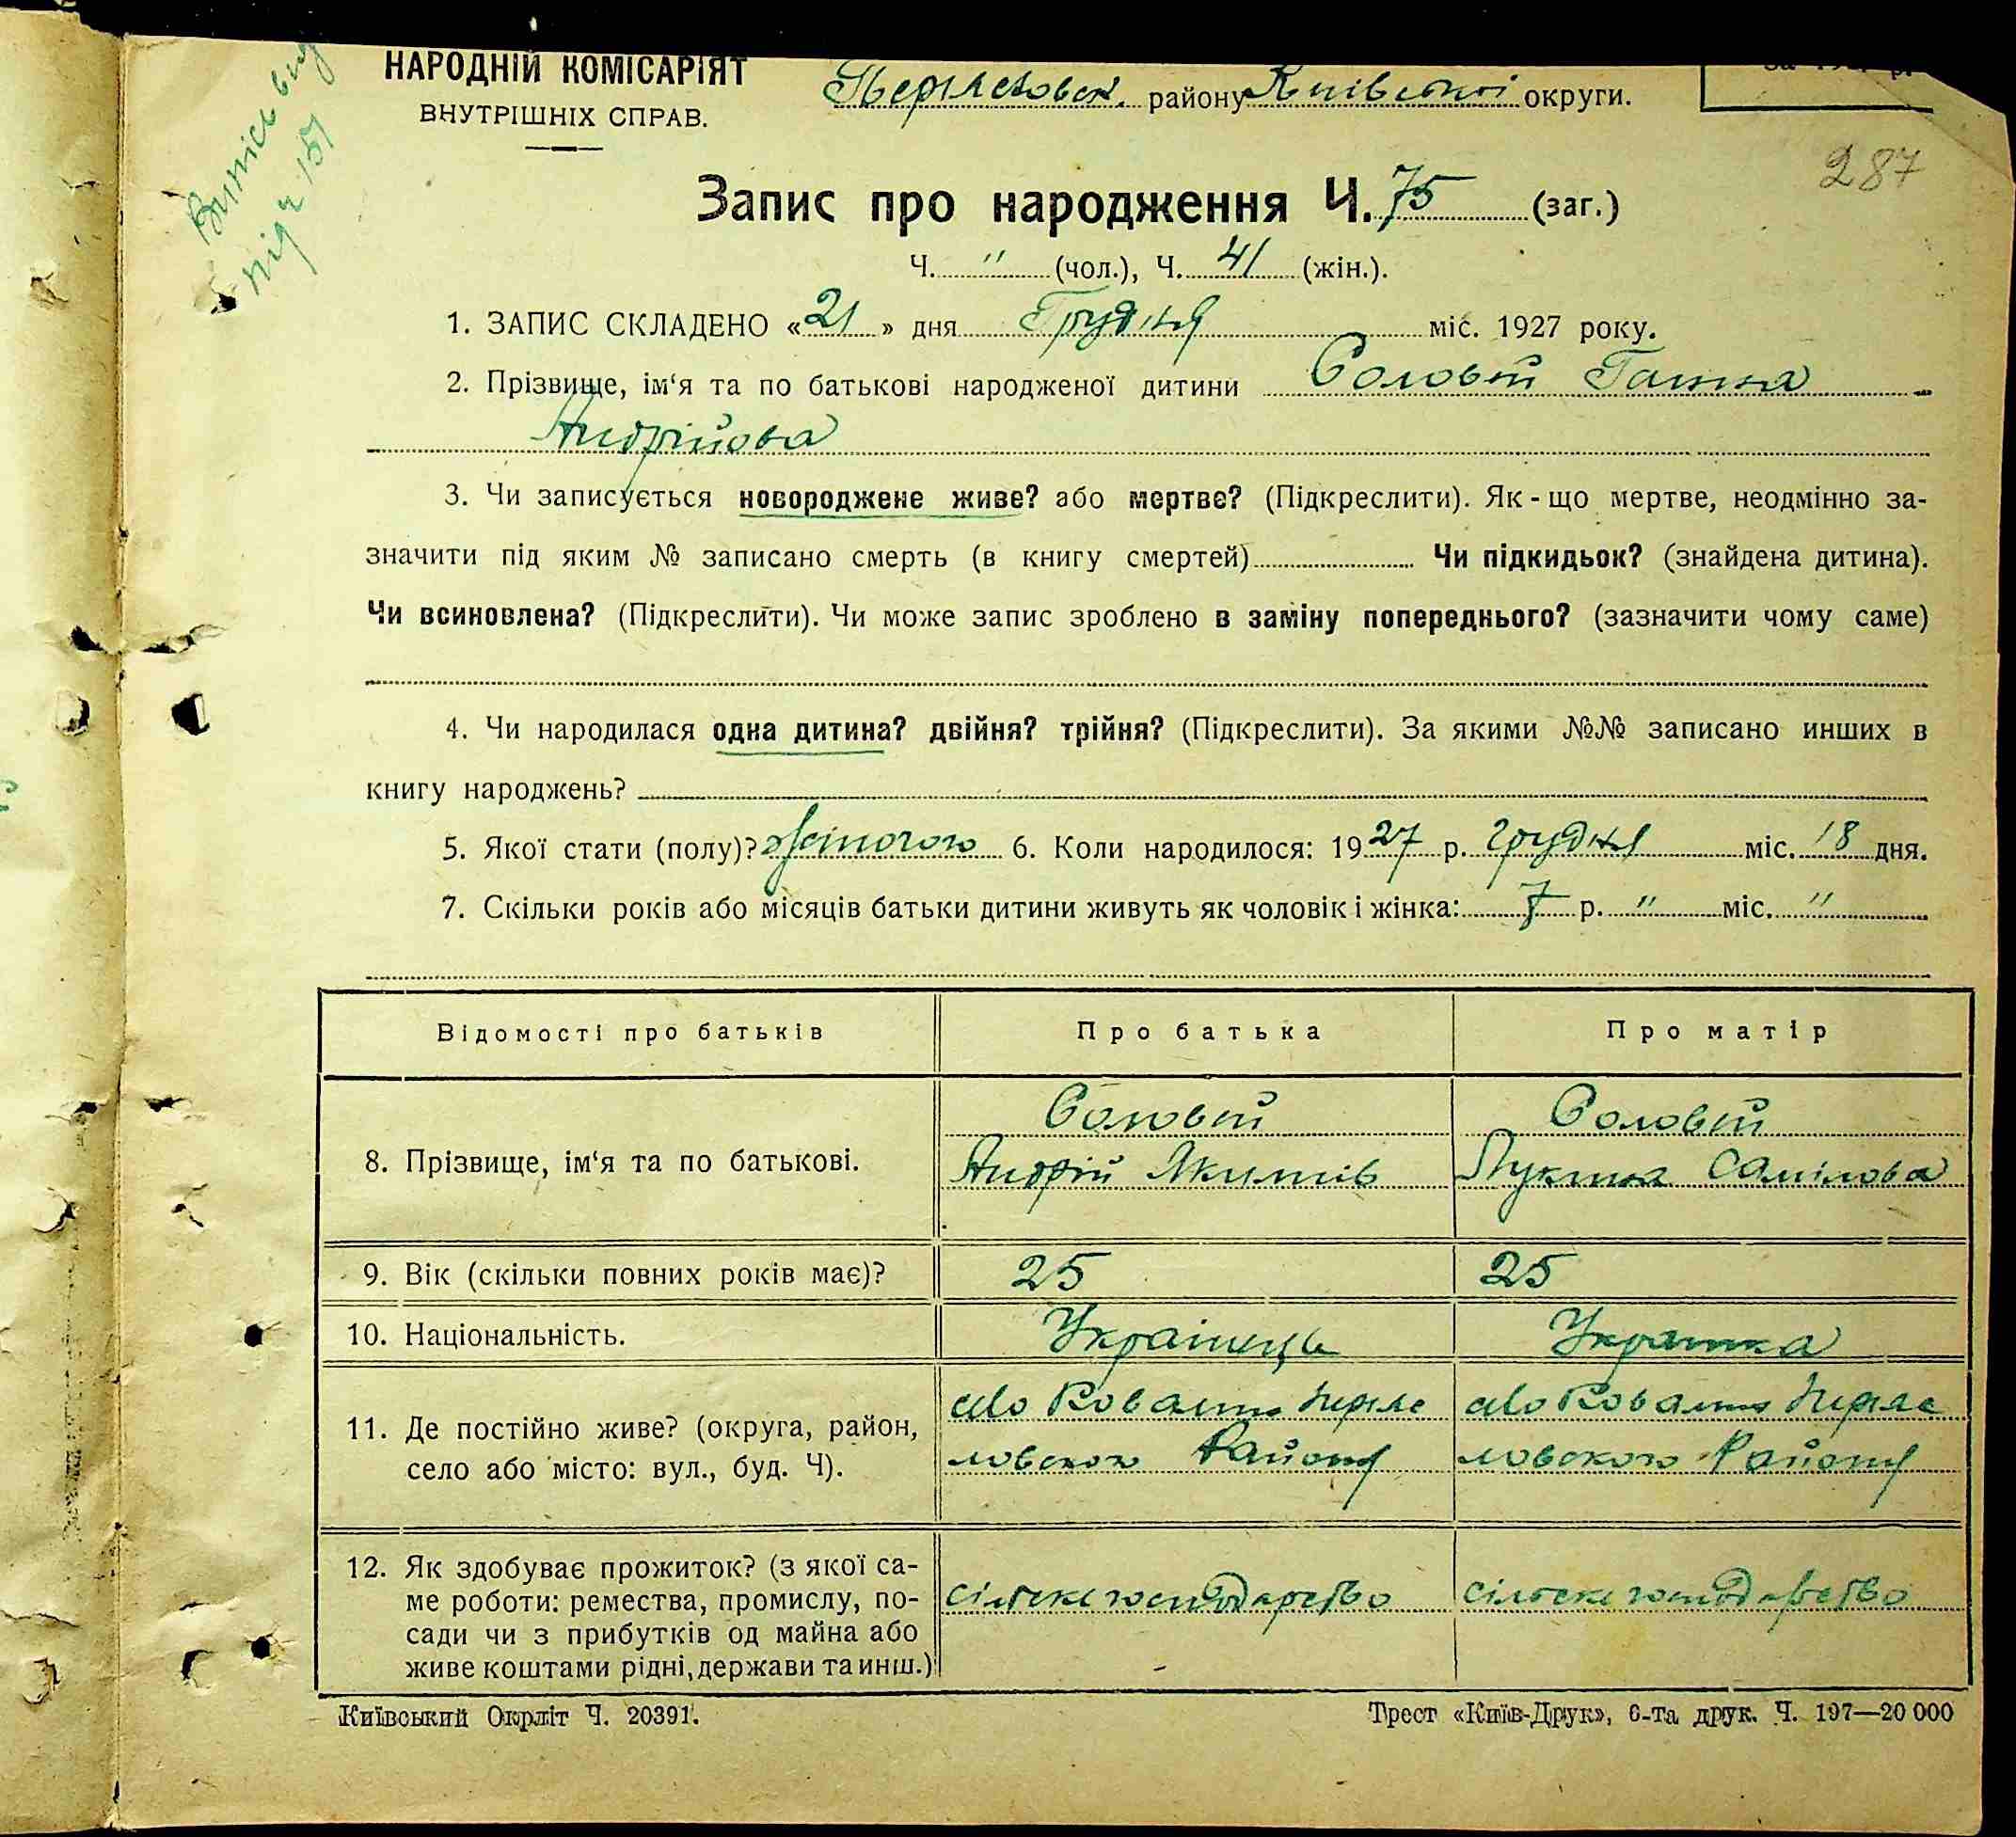 Випись вид
під ч 151
НАРОДНІЙ КОМІСАРІЯТ
ВНУТРІШНІХ СПРАВ.
району Київської округи.
287
Запис про народження Ч. 75 (заг.)
Ч. " (чол.), Ч. 41 (жін.).
1. ЗАПИС СКЛАДЕНО «21» дня Грудня міс. 1927 року.
2. Прізвище, ім‘я та по батькові народженої дитини Соловей Ганна
Андрійова
3. Чи записується новороджене живе? або мертве? (Підкреслити). Як-що мертве, неодмінно за-
значити під яким № записано смерть (в книгу смертей) Чи підкидьок? (знайдена дитина).
Чи всиновлена? (Підкреслити). Чи може запис зроблено в заміну попереднього? (зазначити чому саме)
4. Чи народилася одна дитина? двійня? трійня? (Підкреслити). За якими №№ записано инших в
книгу народжень?
5. Якої стати (полу)? жіночого 6. Коли народилося: 1927 р. грудня міс. 18 дня.
7. Скільки років або місяців батьки дитини живуть як чоловік і жінка: 7 р. " міс. "
Відомості про батьків Про батька Про матір
8. Прізвище, ім‘я та по батькові.
Соловей
Андрій Якимів
Соловей
Лукина Самілова
9. Вік (скільки повних років має)? 25 25
10. Національність. Українець Українка
11. Де постійно живе? (округа, район,
село або місто: вул., буд. Ч).
село Ковалин
Району
село Ковалин
Району
12. Як здобуває прожиток? (з якої са-
ме роботи: ремества, промислу, по-
сади чи з прибутків од майна або
живе коштами рідні, держави та инш.)
сільске господарство
сільске господарство
Київський Окрліт Ч. 20391.
Трест «Київ-Друк», 6-та друк. Ч. 197—20 000